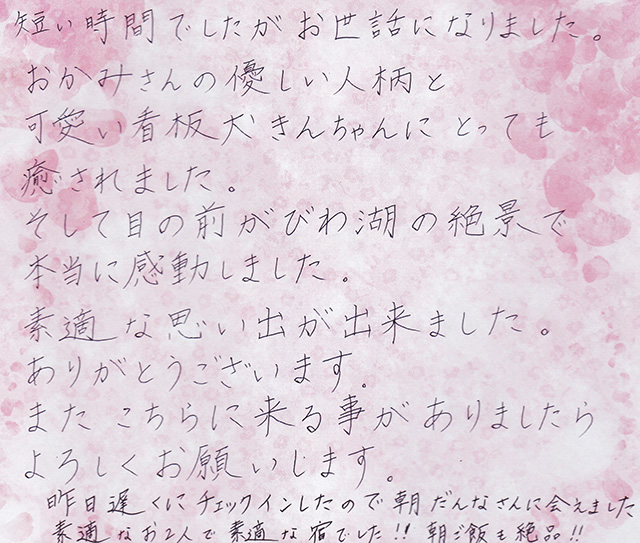 短い時間でしたがお世話になりました。
おかみさんの優しい人柄と
可愛い看板犬きんちゃんにとっても
癒されました。
そして目の前がびわ湖の絶景で
本当に感動しました。
素適な思い出が出来ました。
ありがとうございます。
またこちらに来る事がありましたら
よろしくお願いします。
昨日遅くにチェックインしたので朝だんなさんに会えました
素適なお2人で素適な宿でした!! 朝ご飯も絶品!!